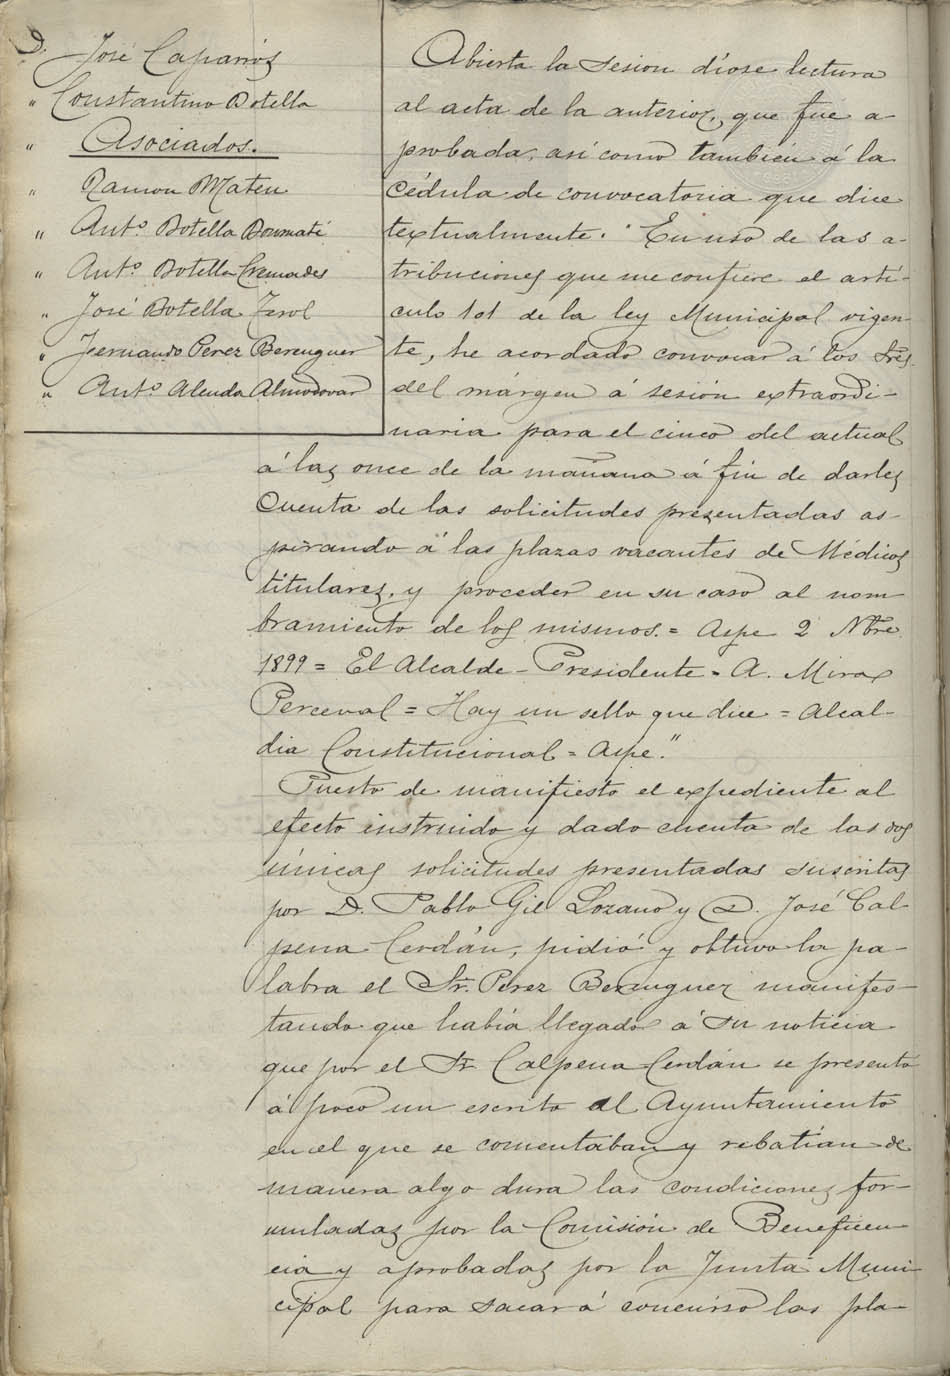 D. José Caparrós
" Constantino Botella
" Asociados.
" Ramon Mateu
" Ant.º Botella Bonmatí
" Ant.º Botella Cremades
" José Botella Terol
" Fernando Perez Berenguer
" Ant.º Alenda Almodovar
Abierta la sesion dióse lectura
al acta de la anterior, que fué a-
probada, asi como tambien á la
Cédula de convocatoria que dice
textualmente. "En uso de las a-
tribuciones que me confiere el artí-
culo 101 de la ley Municipal vigen-
te, he acordado convocar á los Sres.
del márgen á sesión extraordi-
naria para el cinco del actual
á las once de la mañana á fin de darles
Cuenta de las solicitudes presentadas as-
pirando á las plazas vacantes de Médicos
titulares, y proceder en su caso al nom-
bramiento de los mismos. = Aspe 2 Nbre.
1899 = El Alcalde - Presidente = A. Mira
Perceval = Hay un sello que dice = Alcal-
dia Constitucional = Aspe."
Puesto de manifiesto el expediente al
efecto instruido y dado cuenta de las dos
únicas solicitudes presentadas suscritas
por D. Pablo Gil Lozano y D. José Cal-
pena Cerdán, pidió y obtuvo la pa-
labra el Sr. Perez Berenguer manifes-
tando que había llegado á su noticia
que por el Sr. Calpena Cerdán se presentó
á poco un escrito al Ayuntamiento
en el que se comentaban y rebatían de
manera algo dura las condiciones for-
muladas por la Comisión de Beneficen-
cia y aprobadas por la Junta Muni-
cipal para sacar á concurso las pla-